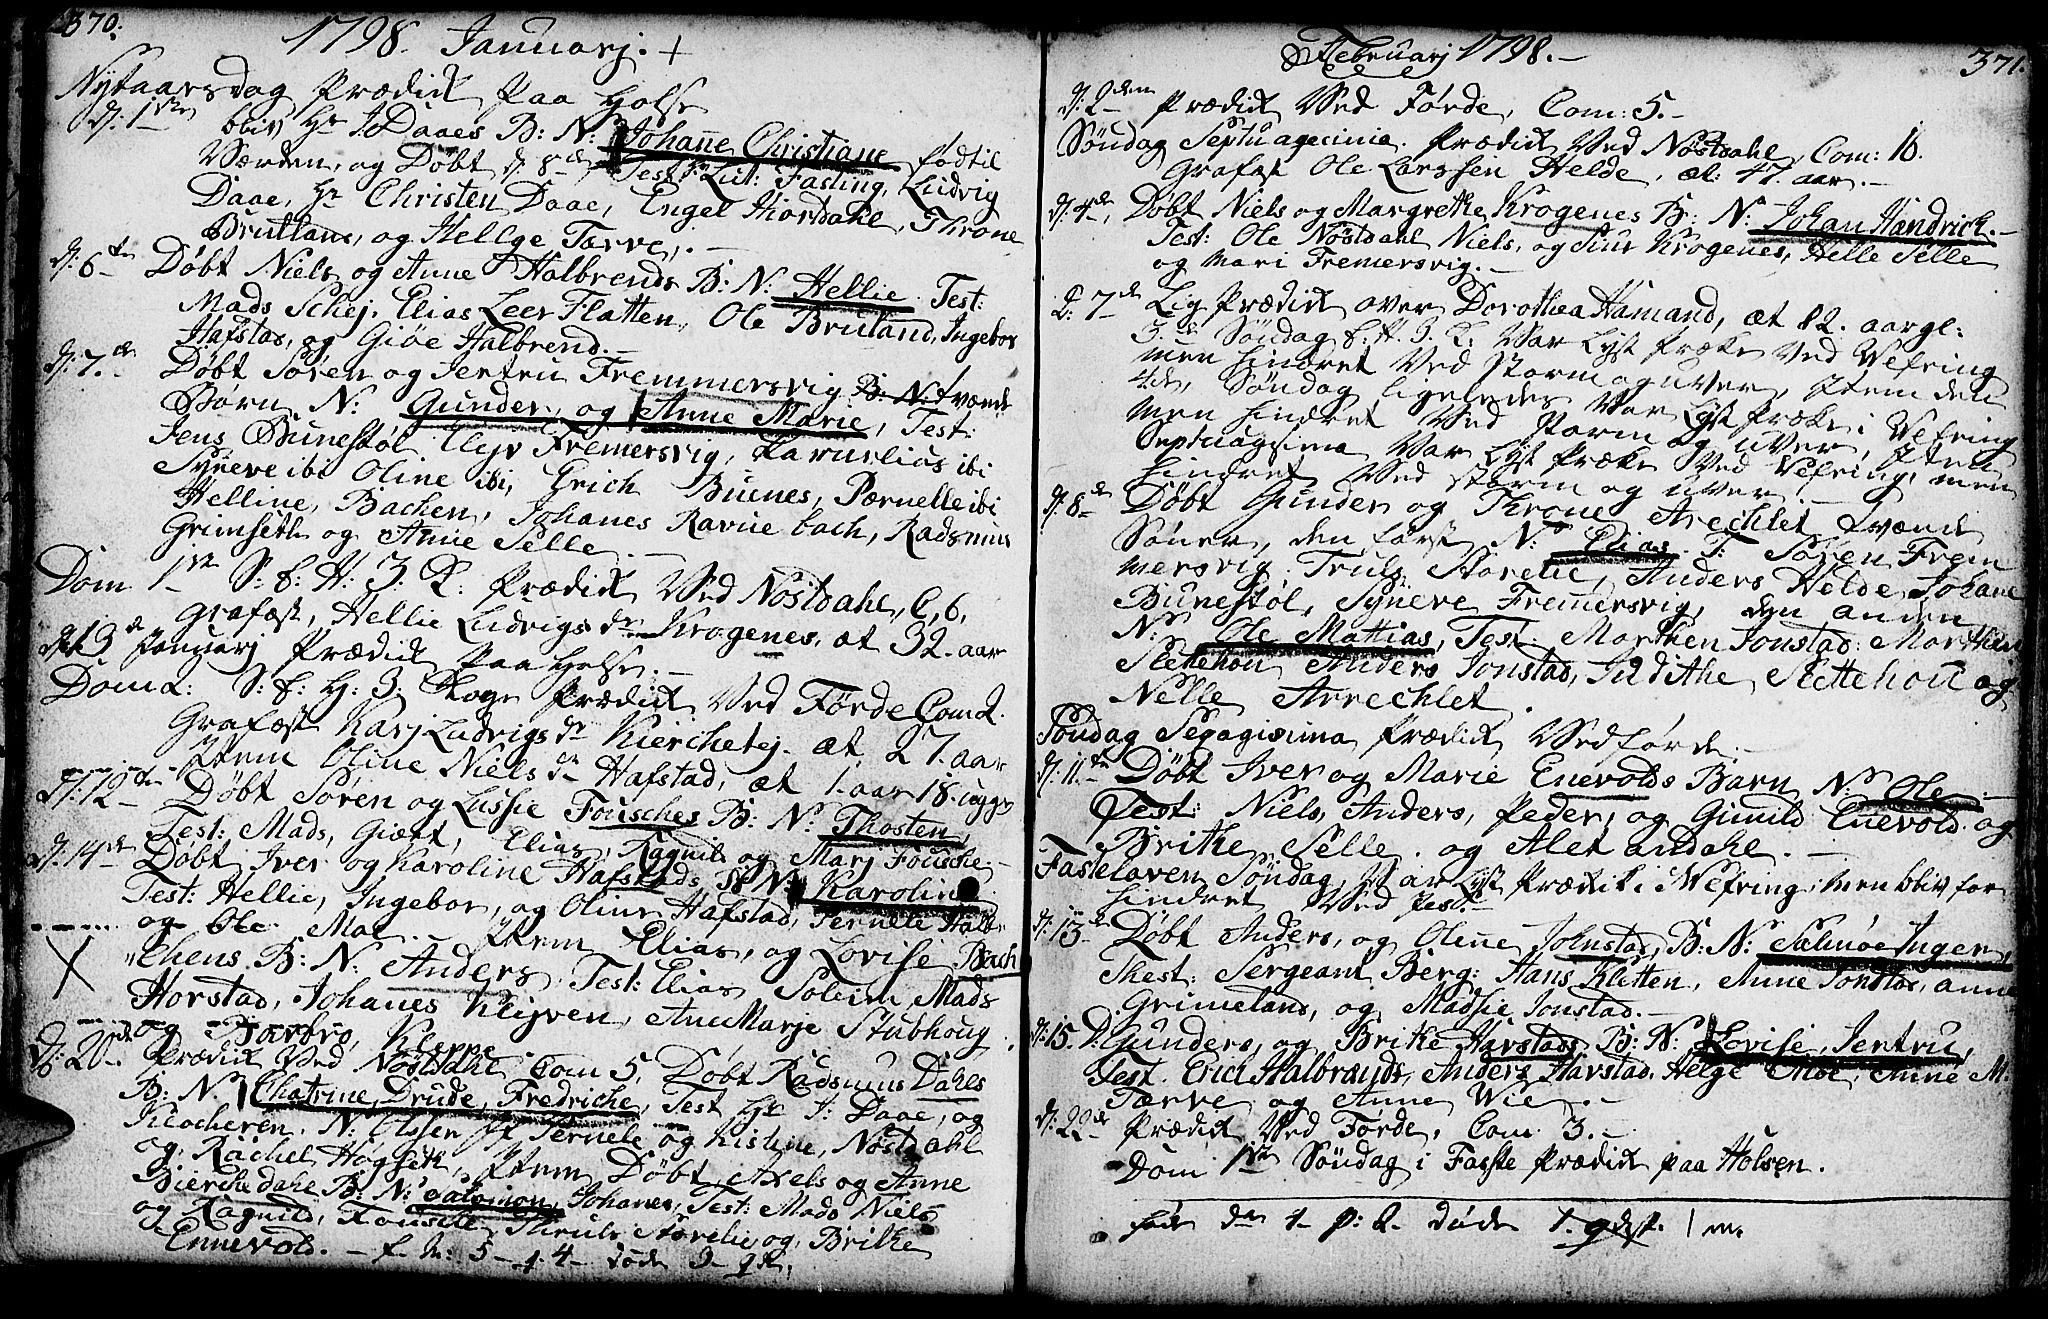 370.
1798. Januarj. +
Nytaarsdag Prædick Paa Holse
d: 1ste bliv Hr J: Daaes B: N: Johanne Christiane fød til
Værden, og Døbt d: 8de, Test: Hr Lüt: Fasling, Ludvig
Daae, Hr Christen Daae, Engel Hiordahl, Throne
Brutlans, og Hellge Tærve.
d: 6te Døbt Niels og Anne Halbrends B: N: Hellie. Test:
Mads Schej, Elias Leer Flatten, Ole Bruland, Ingebor
Hafstad, og Giøe Halbrend.
d: 7de Døbt Søren og Jentru Fremmersvig B: N: tvænde
Børn N: Gunder, og Anne Marie, Test:
Jens Bunestøl Fremersvig, ibi
Syneve ibi Oline ibi, Erich Buenes, Pærnelle ibi
Helline, Bachen, Johanes Ravne bach, Radsmus
Grimseth og Anne Selle.
Dom 1ste S: f: H: 3. K: Prædick Ved Nøstdahl, C, 6,
Grafæst, Hellie Ludvigs dr Krogenes, æt 32. aar
d: 13 Januarj Prædick Paa Holse.
Dom 2: S: f: H: 3. Koge Prædick Ved Førde Com 2.
Grafæst Karj Ludvigs dr Kierchetej. æt 27. aar
Item Oline Niels dr Hafstad, æt 1. aar 18. uger
d: 12te Døbt Søren og Lussie Fousches B: N: Thosten,
Test: Mads, Giært, Elias, Ragnil og Marj Fousche.
d: 14de Døbt Iver og Karoline Hafstads B: N: Karoline
Test: Hellie, Ingebor, og Oline Hafstad, Pernele Halbr
og Ole Moe. Item Elias, og Lovise Bach
ehens B: N: Anders. Test: Elias Soleim Mads
Horstad, Johanes Klejven, Ane Marje Stubhoug
og Barbro, Kleppe
d: 20de Prædick Ved Nøstdahl Com 5, Døbt Radsmus Dahls
B: N: Chatrine Drude, Fredriche, Test Hr J: Daae, og
Klocheren, N: Olssen Pernele og Kistine, Nøstdahl
og Rachel Hogseth, Item Døbt Axels og Anne
Bierchedahl B: N: Salomon, Johanes, Test: Mads Niels
og Ragnild, Fousche, Thruls Aarelie og Brithe
Ennevold. - f. M: 5 - q. 4 - døde 3 - qk.
Februarj 1798. -
371.
d: 2den Prædick Ved Førde, Com: 5. -
Søndag Septuagecimia. Prædick Ved Nøstdahl, Com: 10.
Grafæst Ole Larssen Helde, æt: 47. aar. -
d: 4de, Døbt Niels og Margrethe Krogenes B: N: Johan Handrich.
Test: Ole Nøstdahl Niels, og Siur Krogenes, Helle Selle
og Mari Fremersvig. -
d: 7de Lig Prædick over Dorothea Hamand, æt 82. aar gl:
3de Søndag f. H. 3. K. War Lyst Præke Ved Vefring
men hindret Ved Storm og uver, Item den
4de, Søndag ligeledes War Lyst Præke i Vefring
men hindret Ved Storm og uver, Item
Septuagsima War Lyst Præke Ved Vefring, men
hindret Ved Storm og uver. -
d: 8de Døbt Gunder og Throne Arechlet Tvænde
Søner, den først N: Elias. T: Søren Frem
mersvig, Truls Aarelie, Anders Helde, Johane
Bunestøl, Syneve Fremersvig, den anden
N: Ole Mattias, Test: Morthen Jonstad, Morthen
Slettehou Anders Jonstad, Judithe Slettehou og
Nelle Arrechlet.
Søndag Sexagisima Prædick Ved Førde.
d: 11te Døbt Iver og Marie Enevolds Barn N: Ole.
Test: Niels, Anders, Peder, og Gunild Enevold og
Brithe Selle. og Alet andahl.
Fastelaven Søndag, War Lyst Prædick i Wefring, men bliv for
hindret Ved
d: 13de Døbt Anders, og Oline Johnstad, B: N: Salmøe Inger,
Thest: Sergeant Berg: Hans Kletten, Anne Jonstad, anne
Grimeland, og Madsie Jonstad.
d: 15. D: Gunders, og Brithe Havstads B: N: Lovise, Jentru,
Test. Erich Halbrends, Anders Havstad, Helge Moe, Anne M.
Tærve og Anne Wie. -
d: 22de Prædick Ved Førde, Com 3. -
Dom 1ste Søndag i Faste Prædick paa Holsen.
føde Mk 1- q: 2. døde 1 qdst. 1 m.